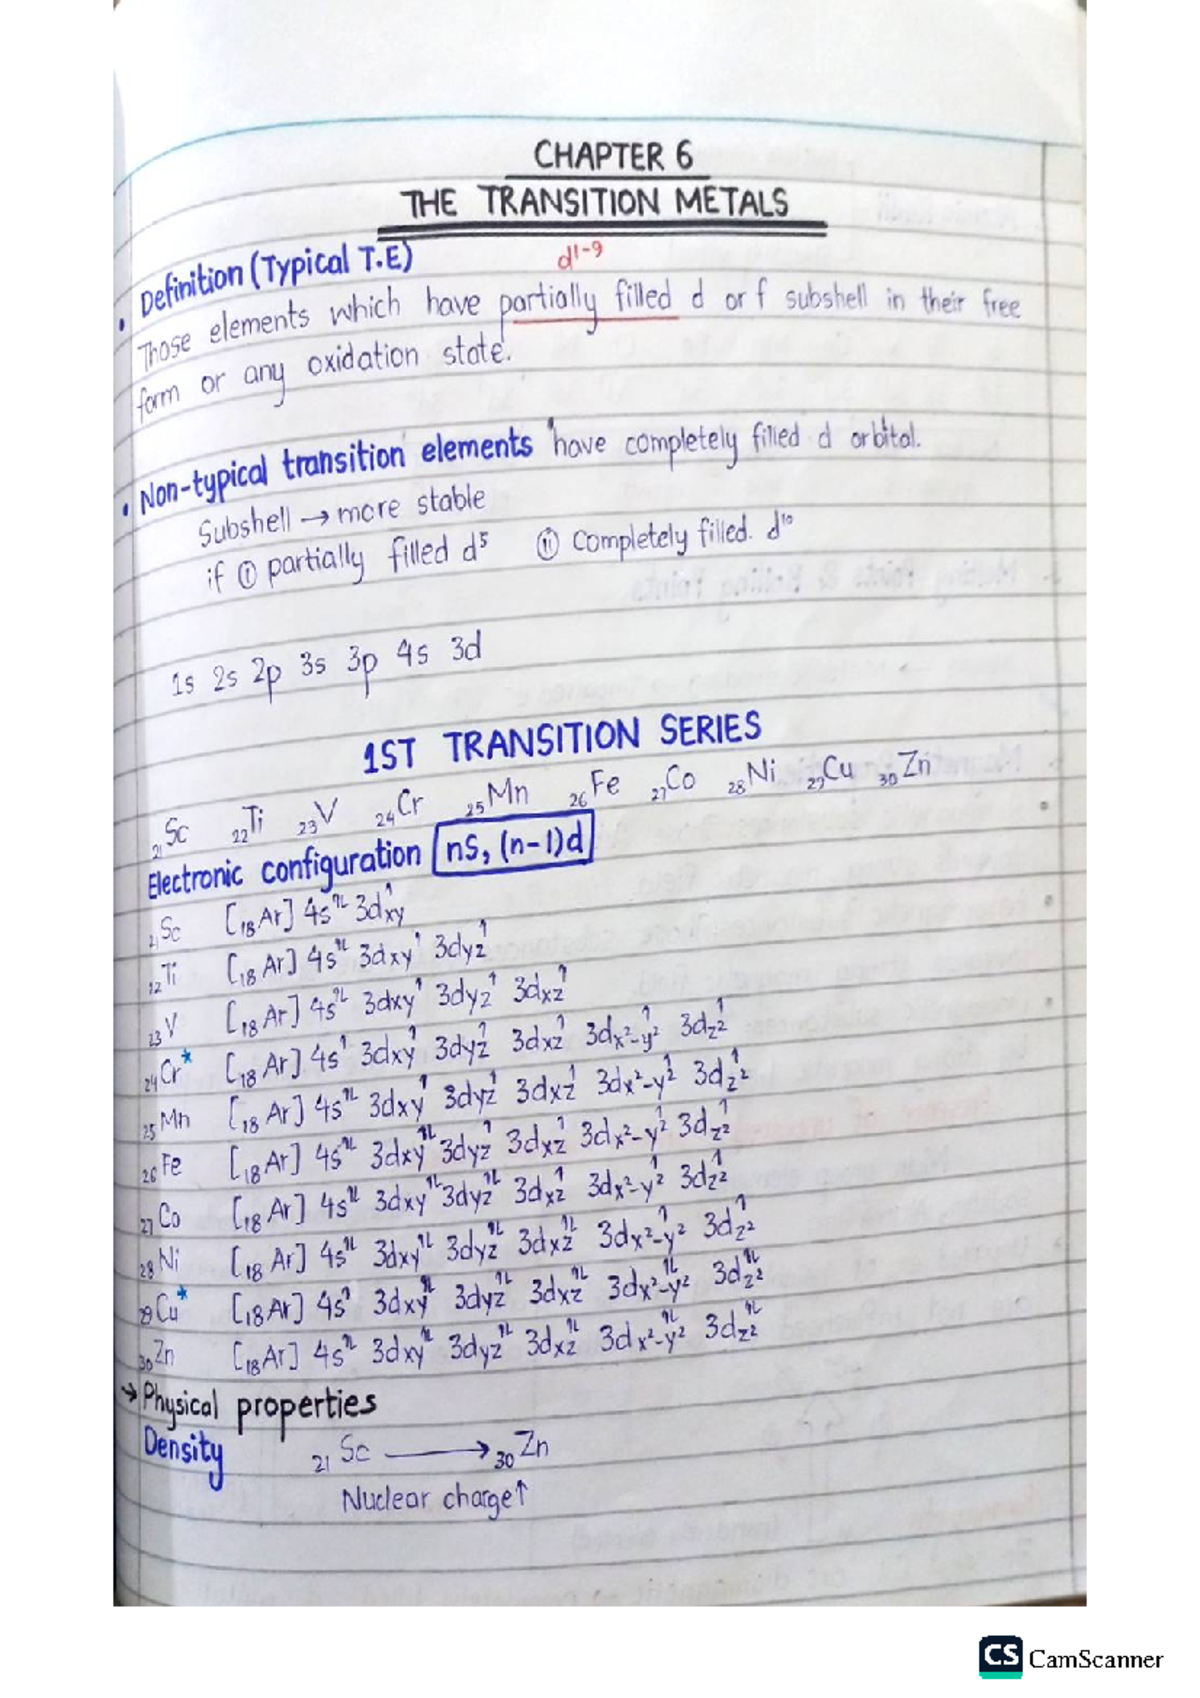 CHAPTER 6
THE TRANSITION METALS
• Definition (Typical T.E) d¹⁻⁹
Those elements which have partially filled d or f subshell in their free
form or any oxidation state.
• Non-typical transition elements have completely filled d orbital.
Subshell → more stable
if ① partially filled d⁵ ⑪ Completely filled. d¹⁰
1s 2s 2p 3s 3p 4s 3d
1ST TRANSITION SERIES
₂₁Sc ₂₂Ti ₂₃V ₂₄Cr ₂₅Mn ₂₆Fe ₂₇Co ₂₈Ni ₂₉Cu ₃₀Zn
Electronic configuration nS, (n-1)d
₂₁Sc [₁₈Ar] 4s↿⇂ 3dxy↿
₂₂Ti [₁₈Ar] 4s↿⇂ 3dxy↿ 3dyz↿
₂₃V [₁₈Ar] 4s↿⇂ 3dxy↿ 3dyz↿ 3dxz↿
₂₄Cr* [₁₈Ar] 4s↿ 3dxy↿ 3dyz↿ 3dxz↿ 3dx²-y²↿ 3dz²↿
₂₅Mn [₁₈Ar] 4s↿⇂ 3dxy↿ 3dyz↿ 3dxz↿ 3dx²-y²↿ 3dz²↿
₂₆Fe [₁₈Ar] 4s↿⇂ 3dxy↿⇂ 3dyz↿ 3dxz↿ 3dx²-y²↿ 3dz²↿
₂₇Co [₁₈Ar] 4s↿⇂ 3dxy↿⇂ 3dyz↿⇂ 3dxz↿ 3dx²-y²↿ 3dz²↿
₂₈Ni [₁₈Ar] 4s↿⇂ 3dxy↿⇂ 3dyz↿⇂ 3dxz↿⇂ 3dx²-y²↿ 3dz²↿
₂₉Cu* [₁₈Ar] 4s↿ 3dxy↿⇂ 3dyz↿⇂ 3dxz↿⇂ 3dx²-y²↿⇂ 3dz²↿⇂
₃₀Zn [₁₈Ar] 4s↿⇂ 3dxy↿⇂ 3dyz↿⇂ 3dxz↿⇂ 3dx²-y²↿⇂ 3dz²↿⇂
→ Physical properties
Density ₂₁Sc ⟶ ₃₀Zn
Nuclear charge↑
CS CamScanner